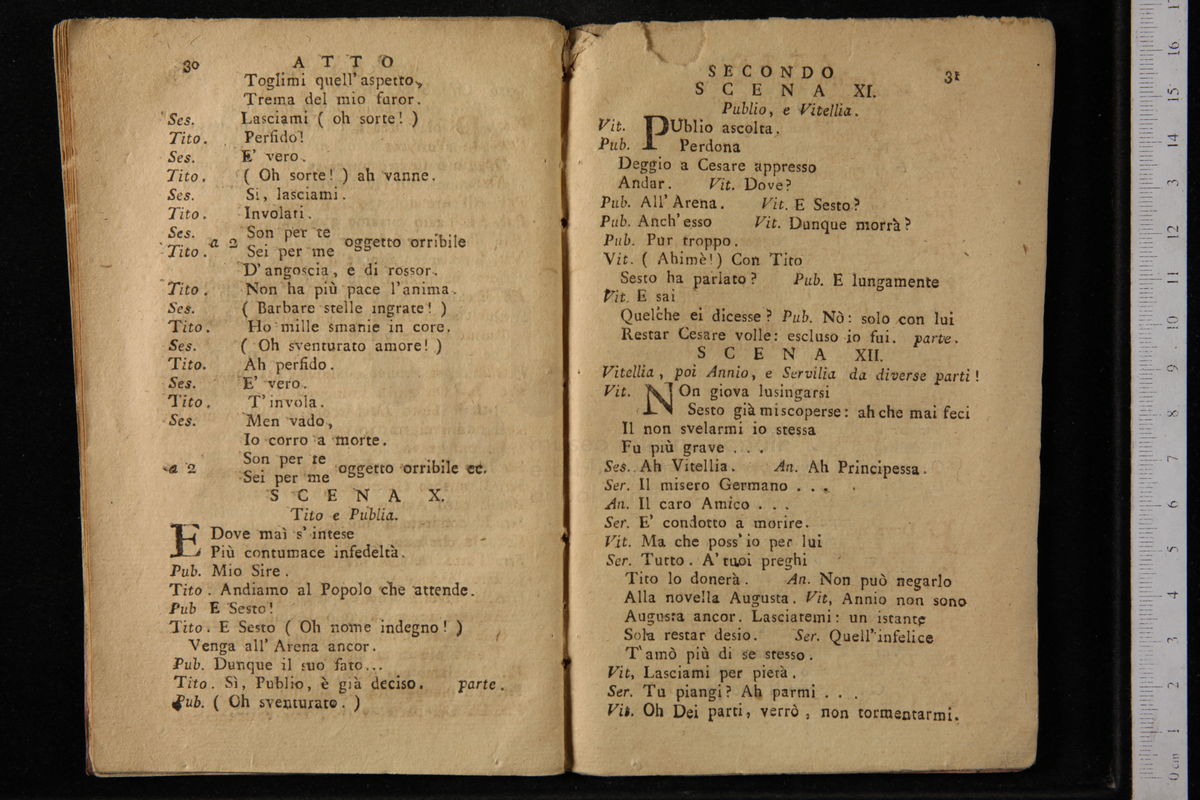 30 ATTO
Toglimi quell' aspetto,
Trema del mio furor.
Ses. Lasciami ( oh sorte! )
Tito. Perfido!
Ses. E' vero.
Tito. ( Oh sorte! ) ah vanne.
Ses. Si, lasciami.
Tito. Involati.
Ses. Son per te
a 2 oggetto orribile
Tito. Sei per me
D'angoscia, e di rossor.
Tito. Non ha più pace l'anima.
Ses. ( Barbare stelle ingrate! )
Tito. Ho mille smanie in core.
Ses. ( Oh sventurato amore! )
Tito. Ah perfido.
Ses. E' vero.
Tito. T'invola.
Ses. Men vado,
Io corro a morte.
Son per te
a 2 oggetto orribile ec.
Sei per me
SCENA X.
Tito e Publia.
E Dove mai s' intese
Più contumace infedeltà.
Pub. Mio Sire.
Tito. Andiamo al Popolo che attende.
Pub E Sesto!
Tito. E Sesto ( Oh nome indegno! )
Venga all' Arena ancor.
Pub. Dunque il suo fato...
Tito. Sì, Publio, è già deciso. parte.
Pub. ( Oh sventurato. )
SECONDO 31
SCENA XI.
Publio, e Vitellia.
Vit. PUblio ascolta.
Pub. Perdona
Deggio a Cesare appresso
Andar. Vit. Dove?
Pub. All' Arena. Vit. E Sesto?
Pub. Anch' esso Vit. Dunque morrà?
Pub. Pur troppo.
Vit. ( Ahimè!) Con Tito
Sesto ha parlato? Pub. E lungamente
Vit. E sai
Quelche ei dicesse? Pub. Nò: solo con lui
Restar Cesare volle: escluso io fui. parte.
SCENA XII.
Vitellia, poi Annio, e Servilia da diverse parti!
Vit. NOn giova lusingarsi
Sesto già miscoperse: ah che mai feci
Il non svelarmi io stessa
Fu più grave . . .
Ses. Ah Vitellia. An. Ah Principessa.
Ser. Il misero Germano . . .
An. Il caro Amico . . .
Ser. E' condotto a morire.
Vit. Ma che poss' io per lui
Ser. Tutto. A' tuoi preghi
Tito lo donerà. An. Non può negarlo
Alla novella Augusta. Vit, Annio non sono
Augusta ancor. Lasciatemi: un istante
Sola restar desio. Ser. Quell' infelice
T'amò più di se stesso.
Vit, Lasciami per pietà.
Ser. Tu piangi? Ah parmi . . .
Vit. Oh Dei parti, verrò, non tormentarmi.
0 cm 1 2 3 4 5 6 7 8 9 10 11 12 13 14 15 16 17